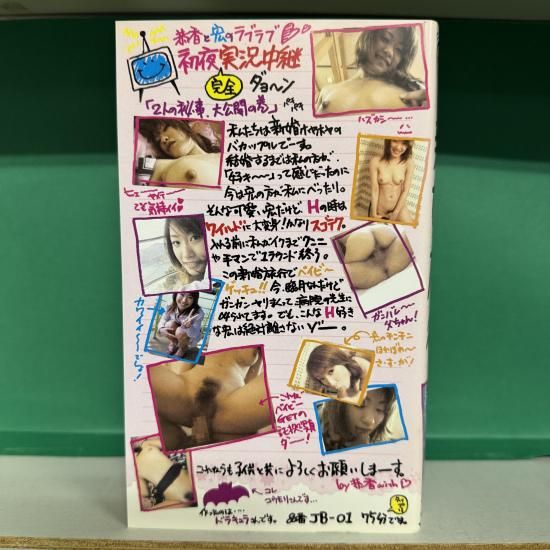 恭香と宏のラブラブ
初夜実況中継
完全
ダョ〜ン
「2人の秘事、大公開の巻」パチパチ
ハズカシ〜…
私たちは新婚ホヤホヤの
バカップルでーす。
結婚するまでは私の方が、
「好き〜〜」って感じだったのに
今は宏の方が私にべったり。
そんな可愛い宏だけど、Hの時は
ワイルドに大変身!かなりスゴテク。
入れる前に私がイクまでクンニ
や手マンで1ラウンド終う。
この新婚旅行でベイビ〜
ゲッチュ!!今、臨月なんだけど
ガンガンヤリまくって病院の先生に
叱られてます。でも、こんなH好き
な宏は絶対離さないゾー。
カワイイ〜でしょ!
ガンバレ〜
父ちゃん!
宏のチンチン
さ・す・が!
これが
ベイビー
GETの
証拠
ダー!
これからも子供と共によろしくお願いしまーす。
by恭香with
コレ
コウモリさんです…
ドラキュラさんです。
品番 JB-01 75分です。